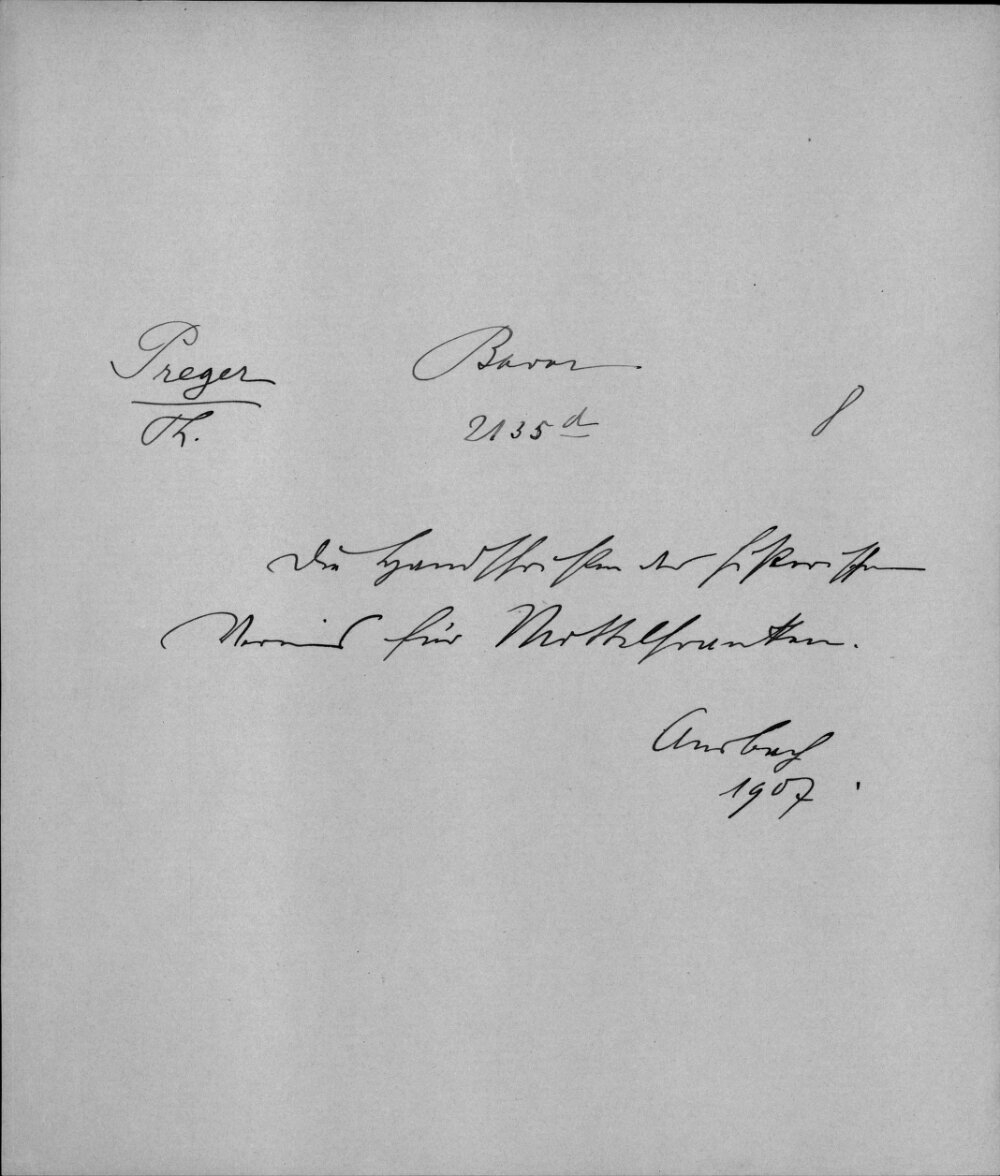 Preger
Th.
Bavar.
2135 d
8
Die Handschriften des historischen
Vereins für Mittelfranken.
Ansbach
1907.